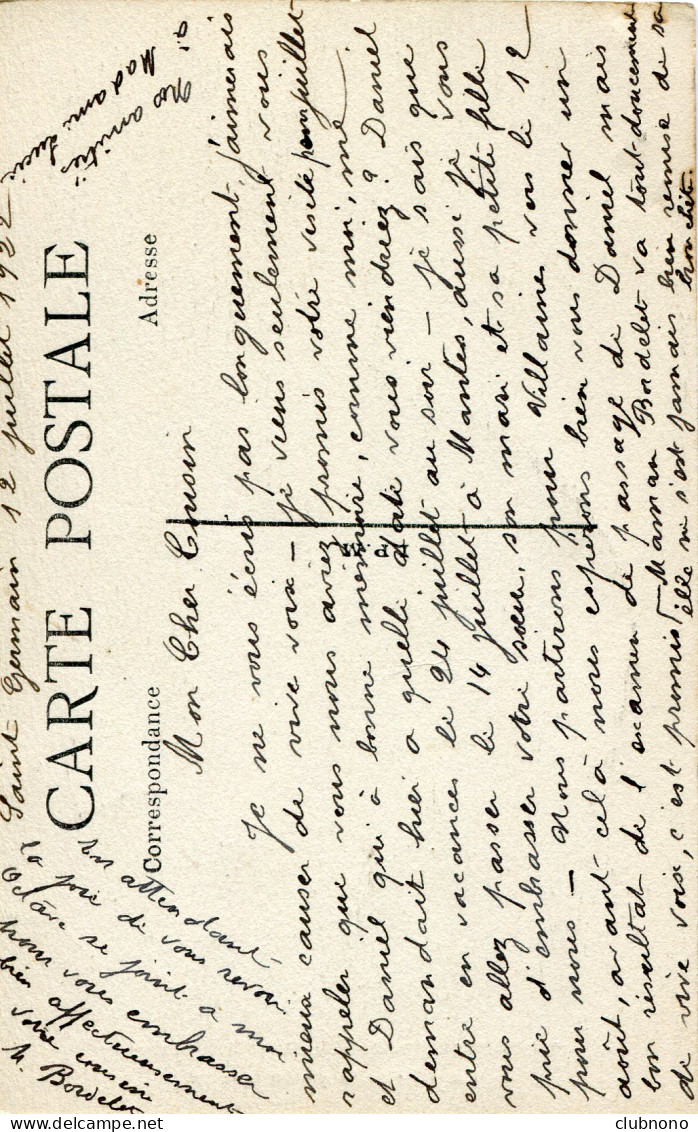 Saint Germain 12 juillet 1922
CARTE POSTALE
Correspondance
Adresse
Mon Cher Cousin
Je ne vous écris pas longuement, j'aimerais
mieux causer de vive voix — je viens seulement vous
rappeler que vous nous aviez promis votre visite pour juillet
et Daniel qui à bonne mémoire, comme moi, me
demandait hier a quelle date vous viendriez? Daniel
entre en vacances le 24 juillet au soir — je sais que
vous allez passer le 14 juillet à Mantes, aussi je vous
prie d'embrasser votre sœur, son mari et sa petite fille
pour nous — Nous partirons pour Villaines vers le 12
août, avant celà nous espérons bien vous donner un
bon résultat de l'examen de passage de Daniel mais
de vive voix, c'est promis! Maman Bordelet va tout-doucement
elle ne s'est jamais bien remise de sa
En attendant
la joie de vous revoir
Octave se joint à moi
pour vous embrasser
bien affectueusement
Votre cousin
M. Bordelet
Nos amitiés
a' Madame Lucie
clubnono